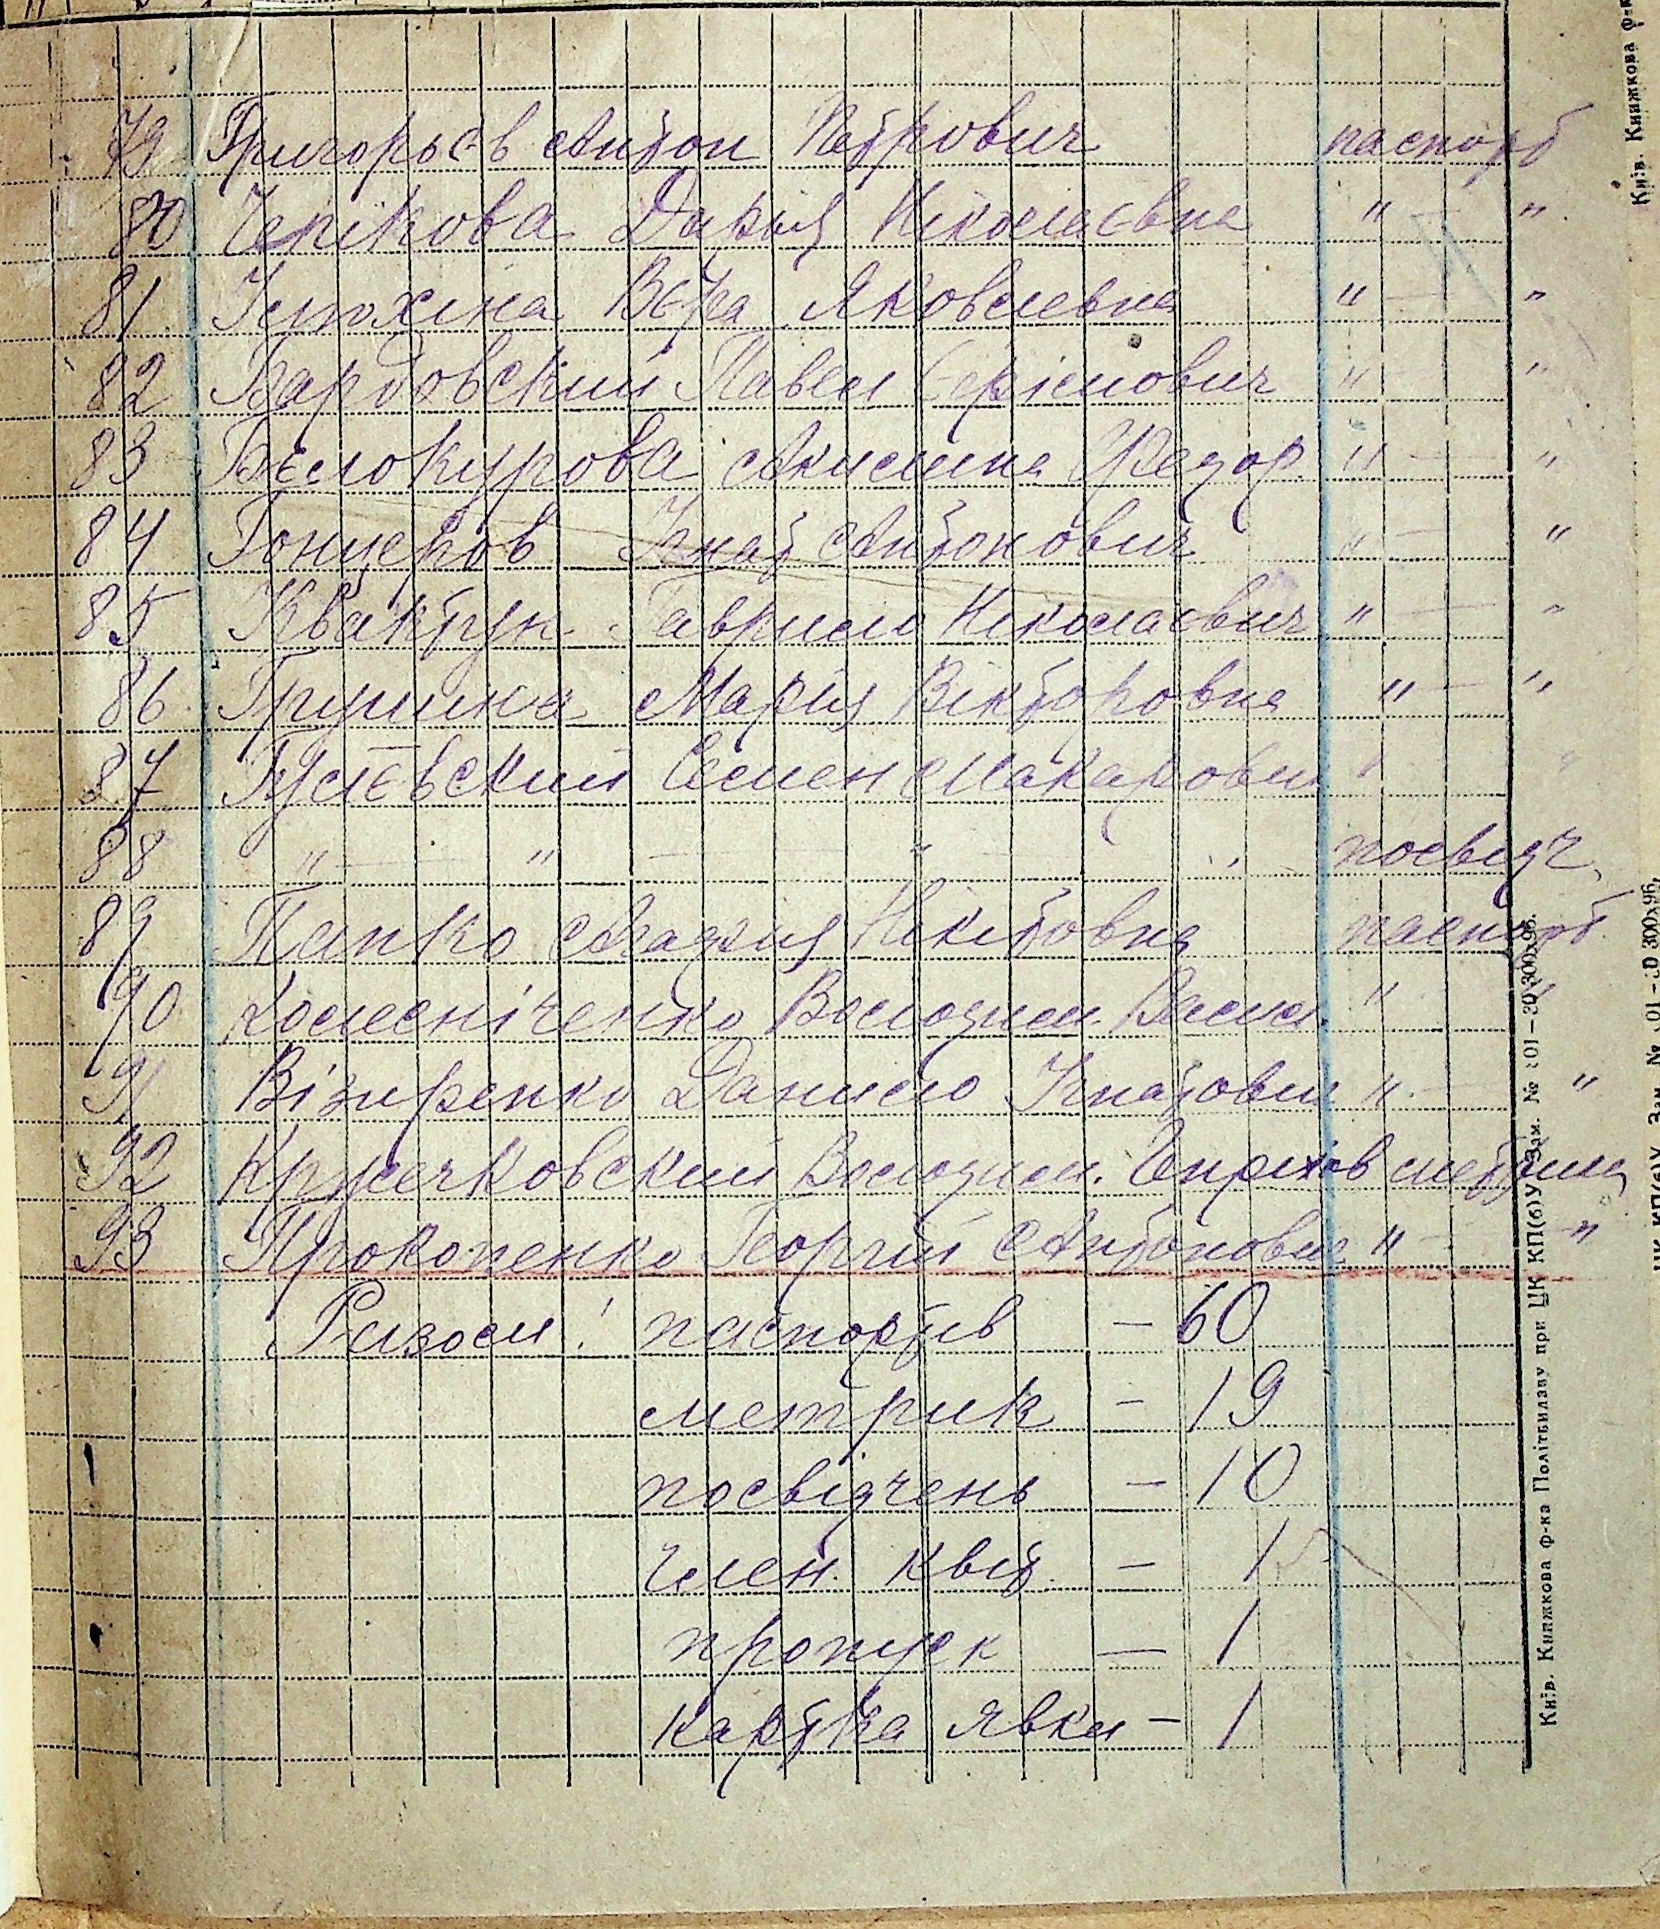 79 Григорьєв Антон Петрович паспорт
80 Черікова Дарья Ніколаєвна " — "
81 Ілюхіна Вєра Яковлевна " — "
82 Бардовский Павел " — "
83 Бєлокурова Акилина Федор. " — "
84 Гонцеров Ігнат Антонович " — "
85 Квактун Гаврило Ніколаєвич " — "
86 Грушина Марія Вікторовна " — "
87 Гулєвский Семен Макарович " "
88 " — " — " — " посвідч.
89 Папко Агафія Нікітовна паспорт
90 Колесніченко Володим. Васил. " "
91 Візиренко Данило Ігнатович " — "
92 Кружчковский Володим. Генріхов метрика
93 Прокопенко Георгій Антонович " — "
Разом: паспортів — 60
метрик — 19
посвідчень — 10
член. квит. — 1
пропуск — 1
картка явки — 1
Київ. Книжкова ф-ка Політвидаву при ЦК КП(б)У Зам. № 301 — 20 300х96.
Київ. Книжкова ф-к
ЦК КП(б)У Зам. № 301 — 20 300х96.